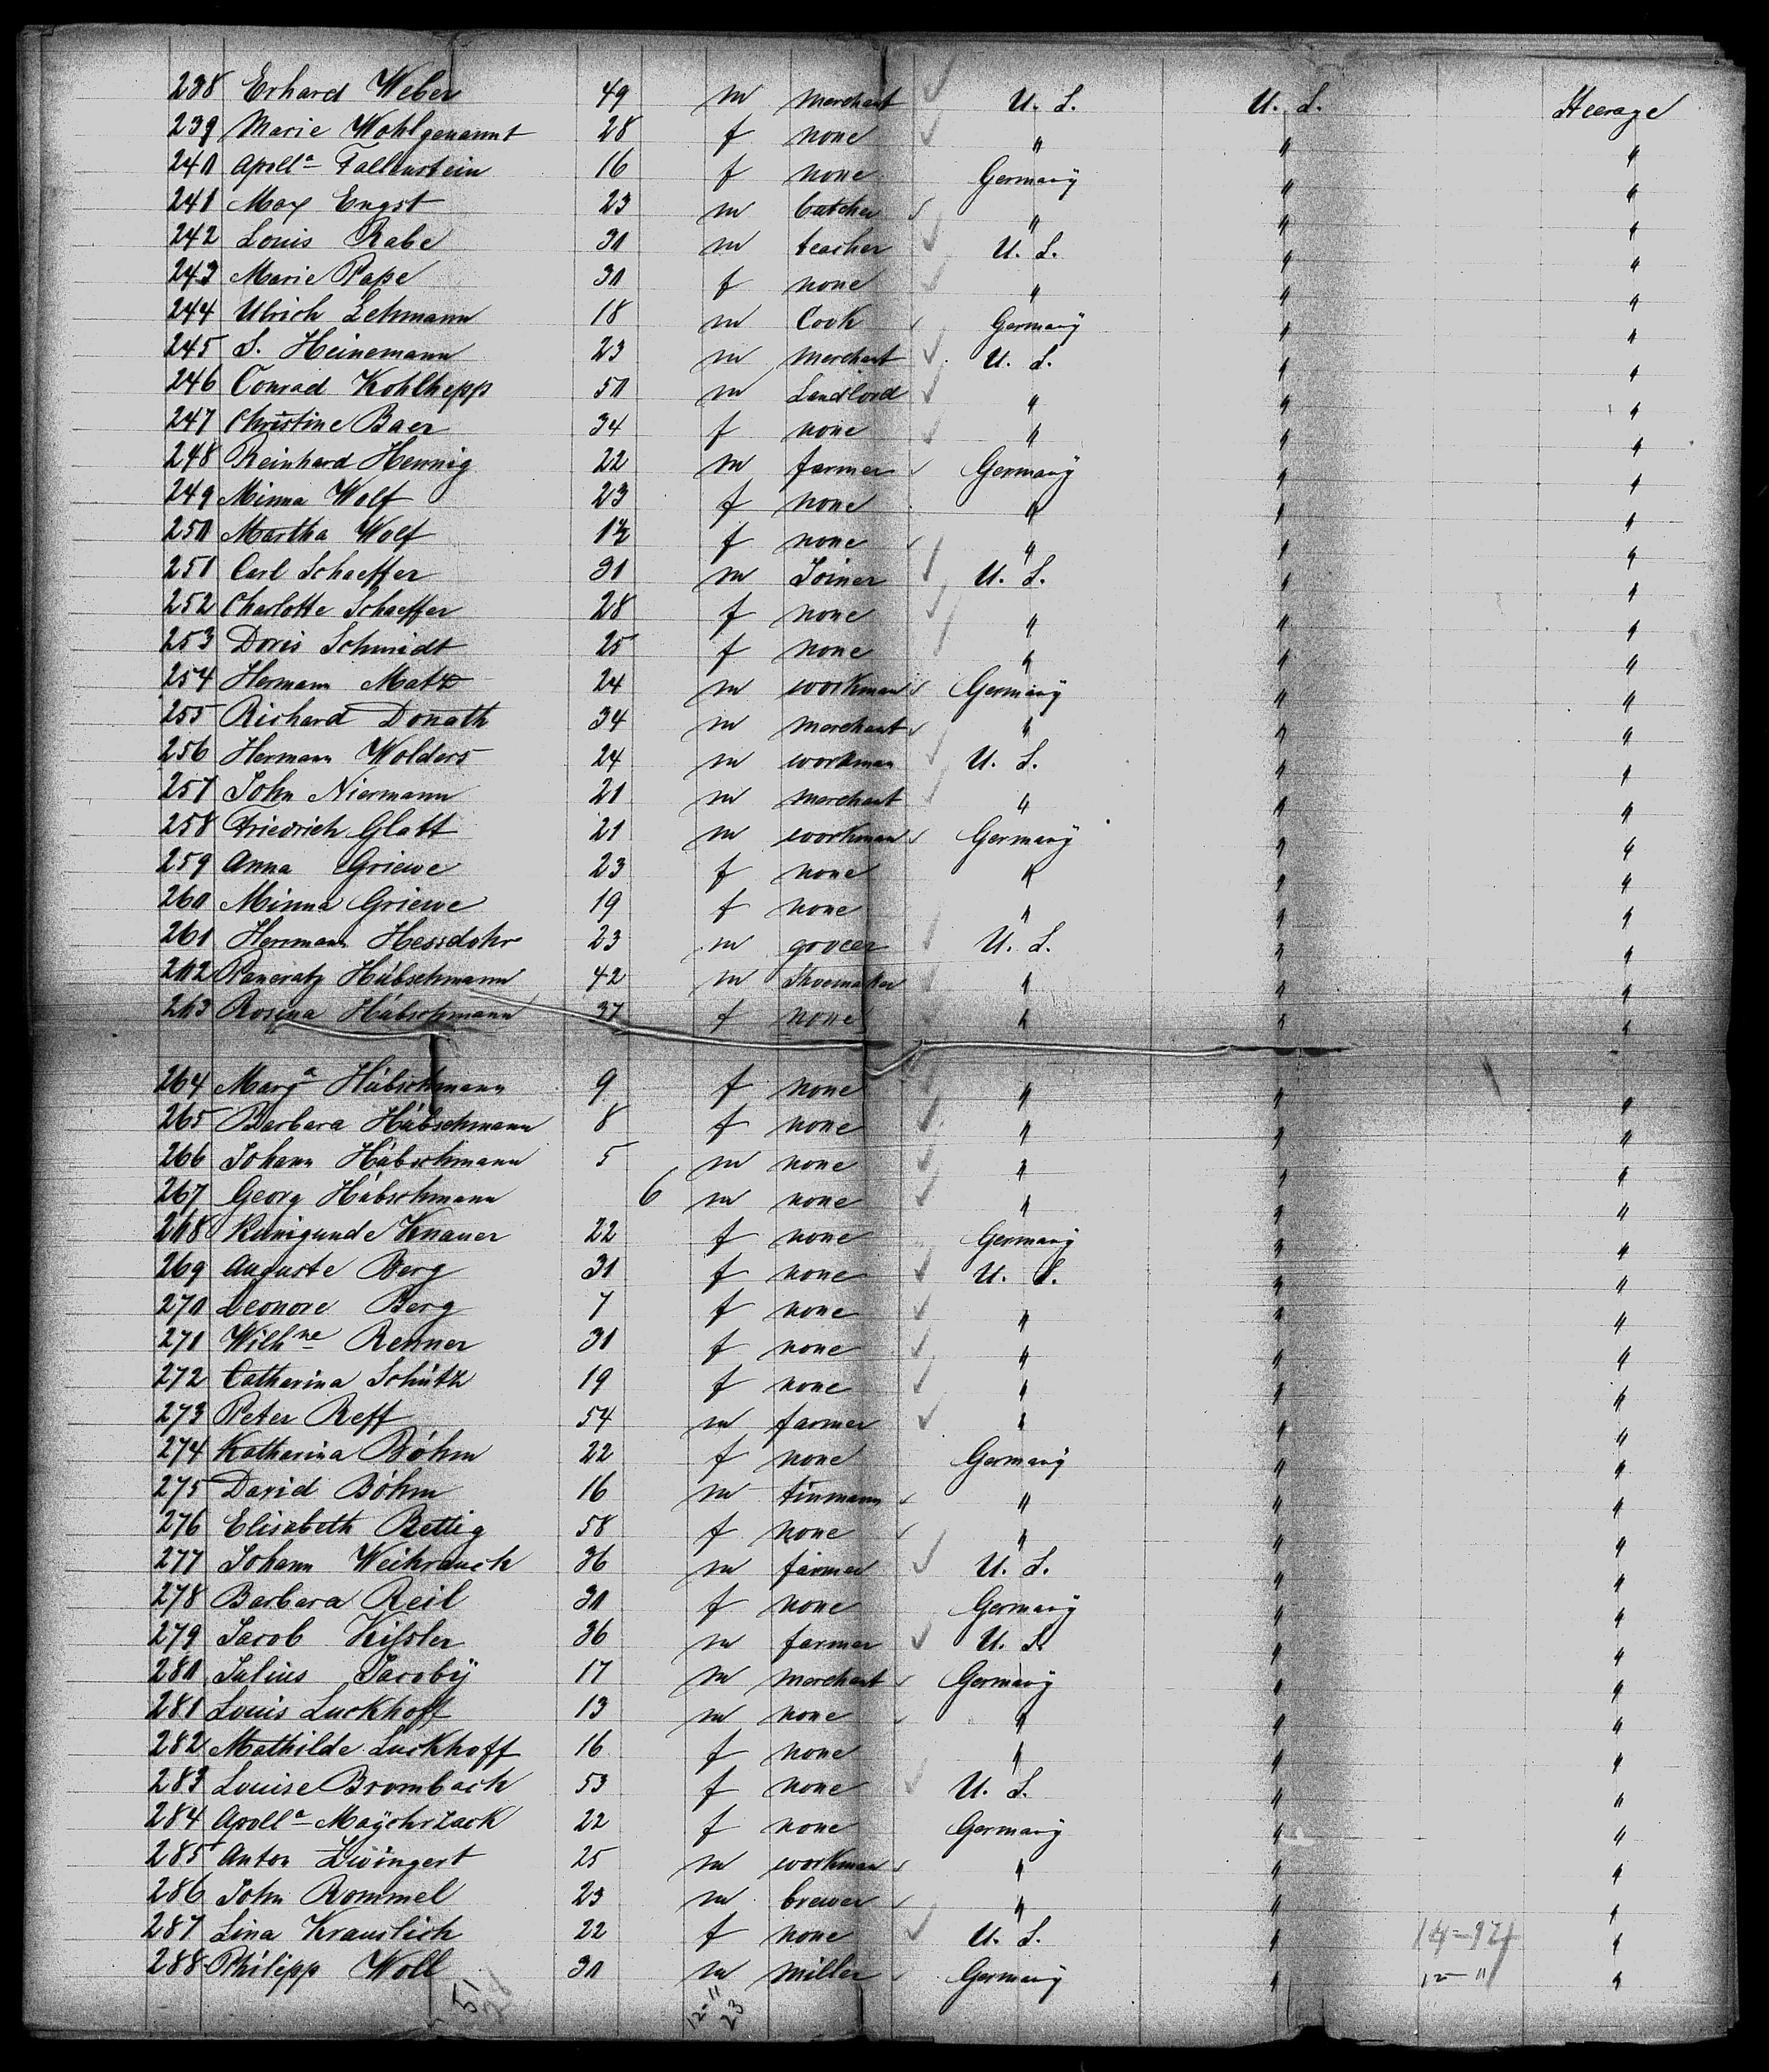 238 Erhard Weber 49 m merchant U. S. U. S. Steerage
239 Marie Wohlgenannt 28 f none " " "
240 Apoll<sup>a</sup> Fallenstein 16 f none Germany " "
241 Max Engst 23 m butcher " " "
242 Louis Rabe 30 m teacher U. S. " "
243 Marie Pape 30 f none " " "
244 Ulrich Lehmann 18 m Cook Germany " "
245 S. Heinemann 23 m merchant U. S. " "
246 Conrad Kohlhepp 50 m Landlord " " "
247 Christine Baer 34 f none " " "
248 Reinhard Hennig 22 m farmer Germany " "
249 Minna Wolf 23 f none " " "
250 Martha Wolf 1½ f none " " "
251 Carl Schaeffer 31 m Joiner U. S. " "
252 Charlotte Schaeffer 28 f none " " "
253 Doris Schmidt 25 f none " " "
254 Hermann Matz 24 m workman Germany " "
255 Richard Donath 34 m merchant " " "
256 Hermann Wolders 24 m workman U. S. " "
257 John Niermann 21 m merchant " " "
258 Friedrich Glatt 21 m workman Germany " "
259 Anna Griewe 23 f none " " "
260 Minna Griewe 19 f none " " "
261 Hermann Hessdohr 23 m grocer U. S. " "
262 Pancratz Hübschmann 42 m Shoemaker " " "
263 Rosina Hübschmann 37 f none " " "
264 Marg<sup>a</sup> Hübschmann 9 f none " " "
265 Barbara Hübschmann 8 f none " " "
266 Johann Hübschmann 5 m none " " "
267 Georg Hübschmann 6 m none " " "
268 Kunigunde Knauer 22 f none Germany " "
269 Auguste Berg 31 f none U. S. " "
270 Leonore Berg 7 f none " " "
271 Wilh<sup>ne</sup> Renner 31 f none " " "
272 Catharina Schütz 19 f none " " "
273 Peter Reff 54 m farmer " " "
274 Katharina Böhm 22 f none Germany " "
275 David Böhm 16 m tinmann " " "
276 Elisabeth Bettig 58 f none " " "
277 Johann Weihrauch 36 m farmer U. S. " "
278 Barbara Reil 30 f none Germany " "
279 Jacob Kissler 36 m farmer U. S. " "
280 Julius Jacobÿ 17 m merchant Germany " "
281 Louis Luckhoff 13 m none " " "
282 Mathilde Luckhoff 16 f none " " "
283 Louise Brombach 53 f none U. S. " "
284 Apoll<sup>a</sup> Maÿchrzack 22 f none Germany " "
285 Anton Zwingert 25 m workman " " "
286 John Rommel 23 m brewer " " "
287 Lina Krauslich 22 f none U. S. " "
288 Philipp Woll 30 m miller Germany " "
51
12-"
23